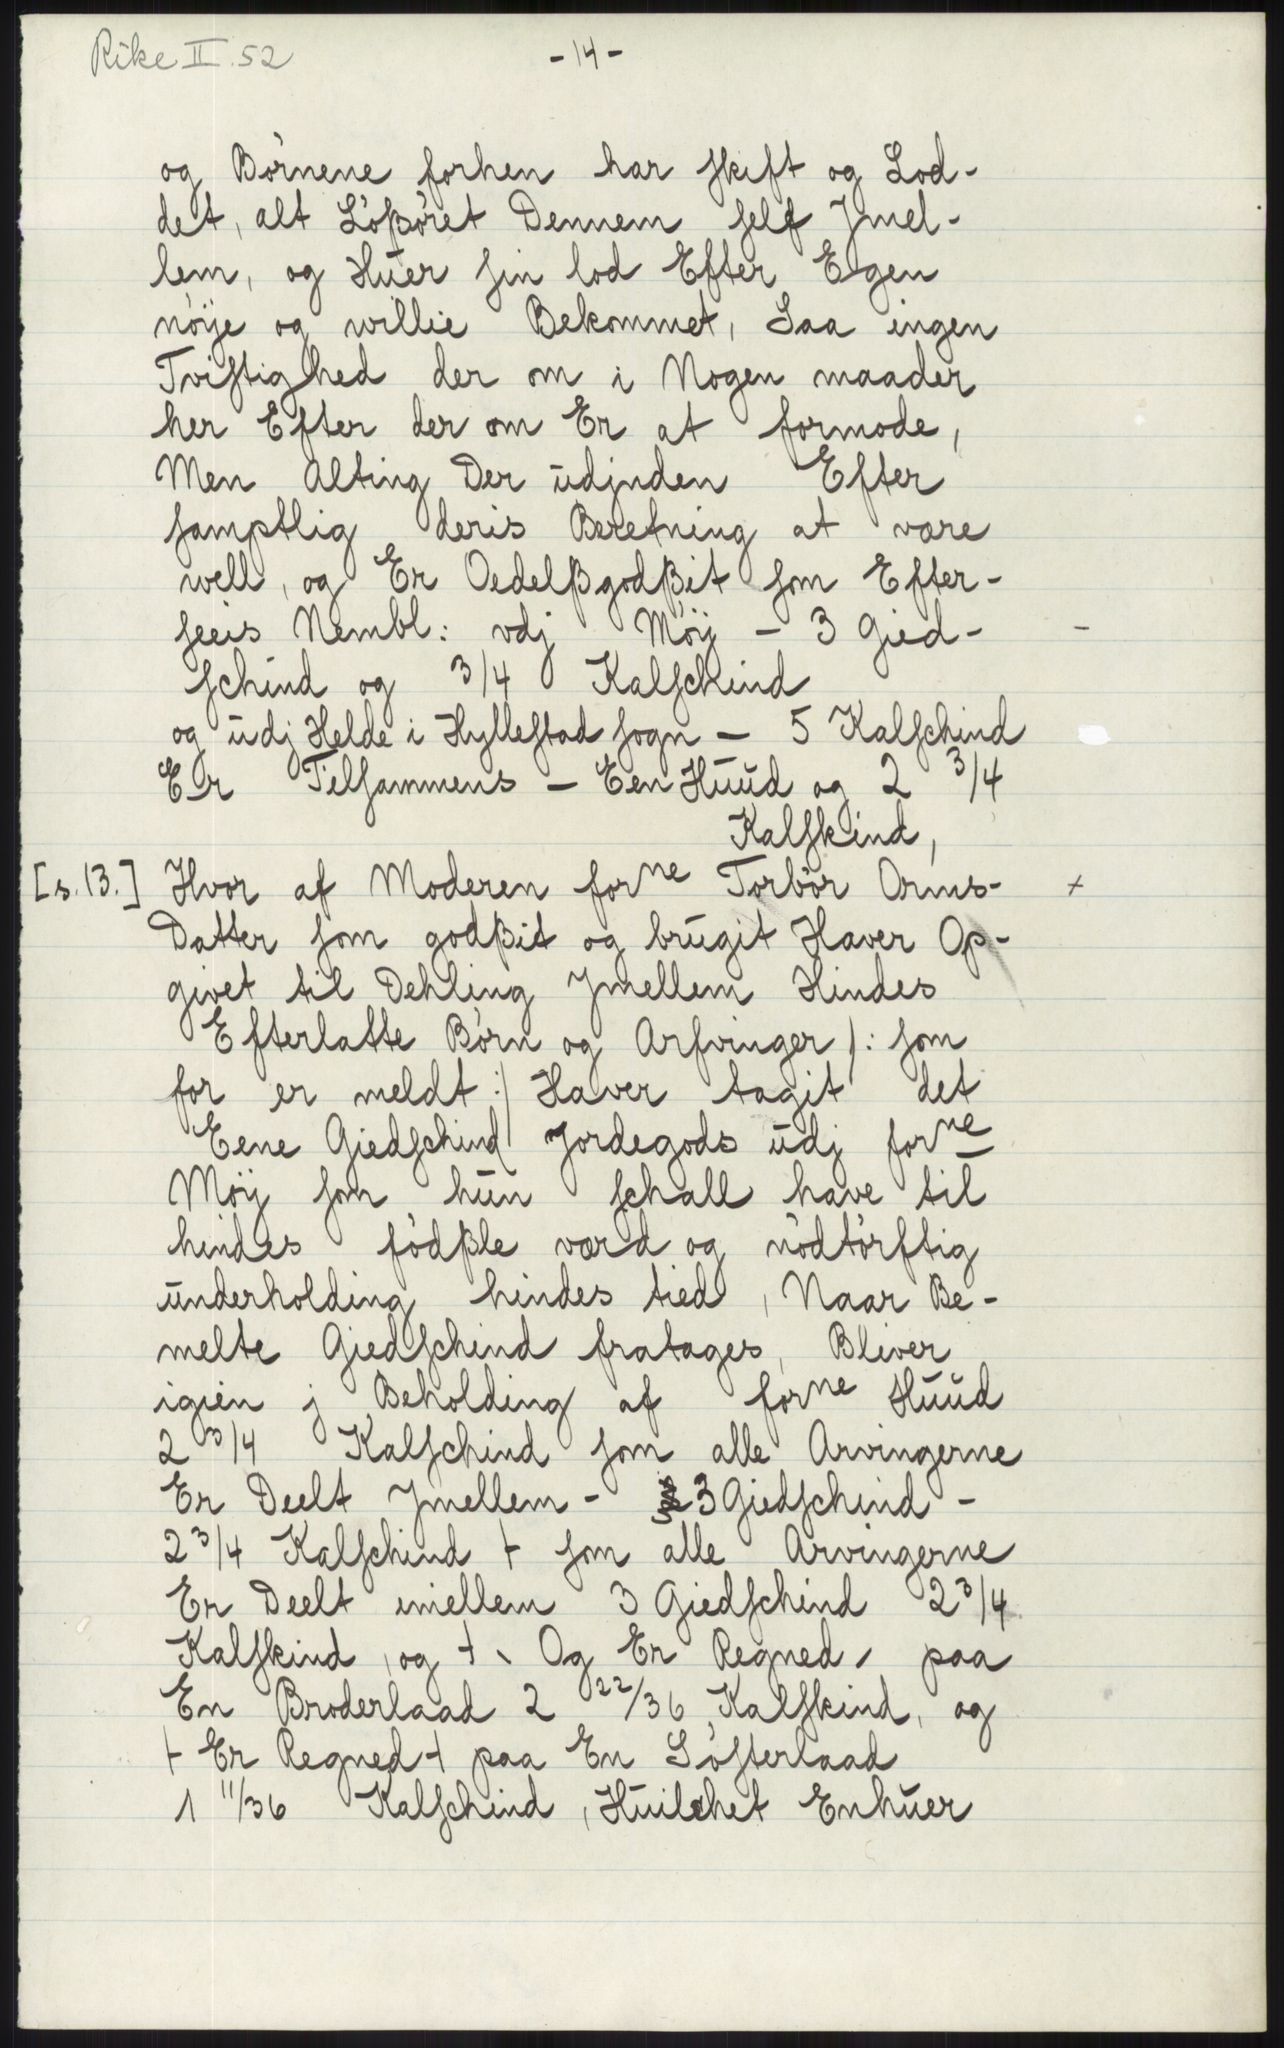 Rike II. 52
- 14 -
og Börnene forhen har skift og Lod-
det, alt Lößöret Dennem self Jmel-
lem, og Huer sin lod Efter Egen
nöije og willie Bekommet, Saa ingen
Tvistighed der om i Nogen maader
her Efter der om Er at formode,
Men Alting Der udjnden Efter
samptlig deris Beretning at være
well, og Er Oedelßgodßit som Efter-
seeis Nembl: vdj Möy - 3 Gied- -
schind og 3/4 Kalschind
og udj Helde i Hyllestad sogn - 5 Kalschind
Er Tilsammens - Een Huud og 2 3/4
Kalskind,
[s. 13.] Hvor af Moderen forne Torbör Orms- +
Datter som godßit og brugit Haver Op-
givet til Dehling Jmellem Hindes
Efterlatte Börn og Arfvinger /: som
for er meldt :/ Haver tagit det
Eene Giedschind Jordegods udj forne
Möy som hun schall have til
hindes födßle værd og nödtörftig
underholding hindes tied, Naar Be-
melte Giedschind fratages, Bliver
igien j Beholding af forne Huud
2 3/4 Kalschind som alle Arvingerne
Er Deelt Jmellem - 3 Giedschind -
2 3/4 Kalschind + som alle Arvingerne
Er Deelt imellem 3 Giedschind 2 3/4
Kalskind, og +, Og Er Regned, paa
En Broderlaad 2 22/36 Kalskind, og
+ Er Regned + paa En Sösterlaad
1 11/36 Kalschind, Huilchet Enhuer